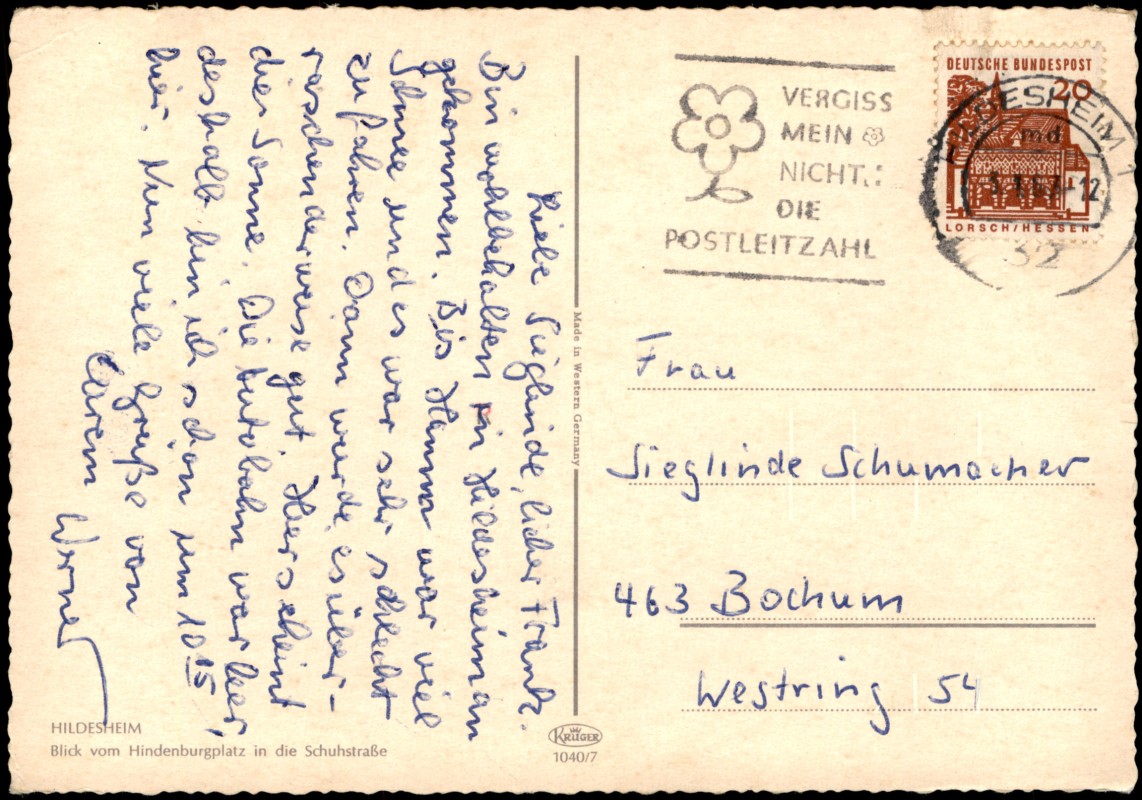 Liebe Sieglinde, lieber Frank.
Bin wohlbehalten in Hildesheim an
gekommen. Bis Hamm war viel
Schnee und es war sehr schlecht
zu fahren. Dann wurde es über-
raschenderweise gut. Hier scheint
die Sonne. Die Autobahn war leer,
deshalb bin ich schon um 10 15
hier. Nun viele Grüße von
Eurem
Werner
HILDESHEIM
Blick vom Hindenburgplatz in die Schuhstraße
Made in Western Germany
KRÜGER
1040/7
VERGISS
MEIN
NICHT..:
DIE
POSTLEITZAHL
DEUTSCHE BUNDESPOST
20
LORSCH/HESSEN
HILDESHEIM 1
md
-12
32
Frau
Sieglinde Schumacher
463 Bochum
Westring 54